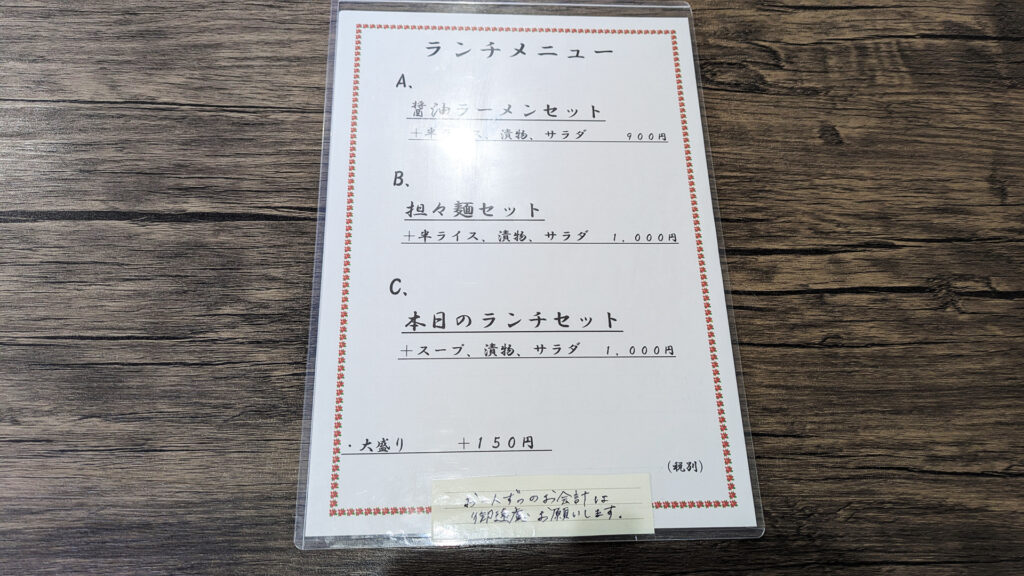 ランチメニュー
A、
醤油ラーメンセット
＋半ライス、漬物、サラダ　９００円
B、
担々麺セット
＋半ライス、漬物、サラダ　１，０００円
C、
本日のランチセット
＋スープ、漬物、サラダ　１，０００円
・大盛り　＋１５０円
（税別）
お一人ずつのお会計は
御遠慮お願いします。